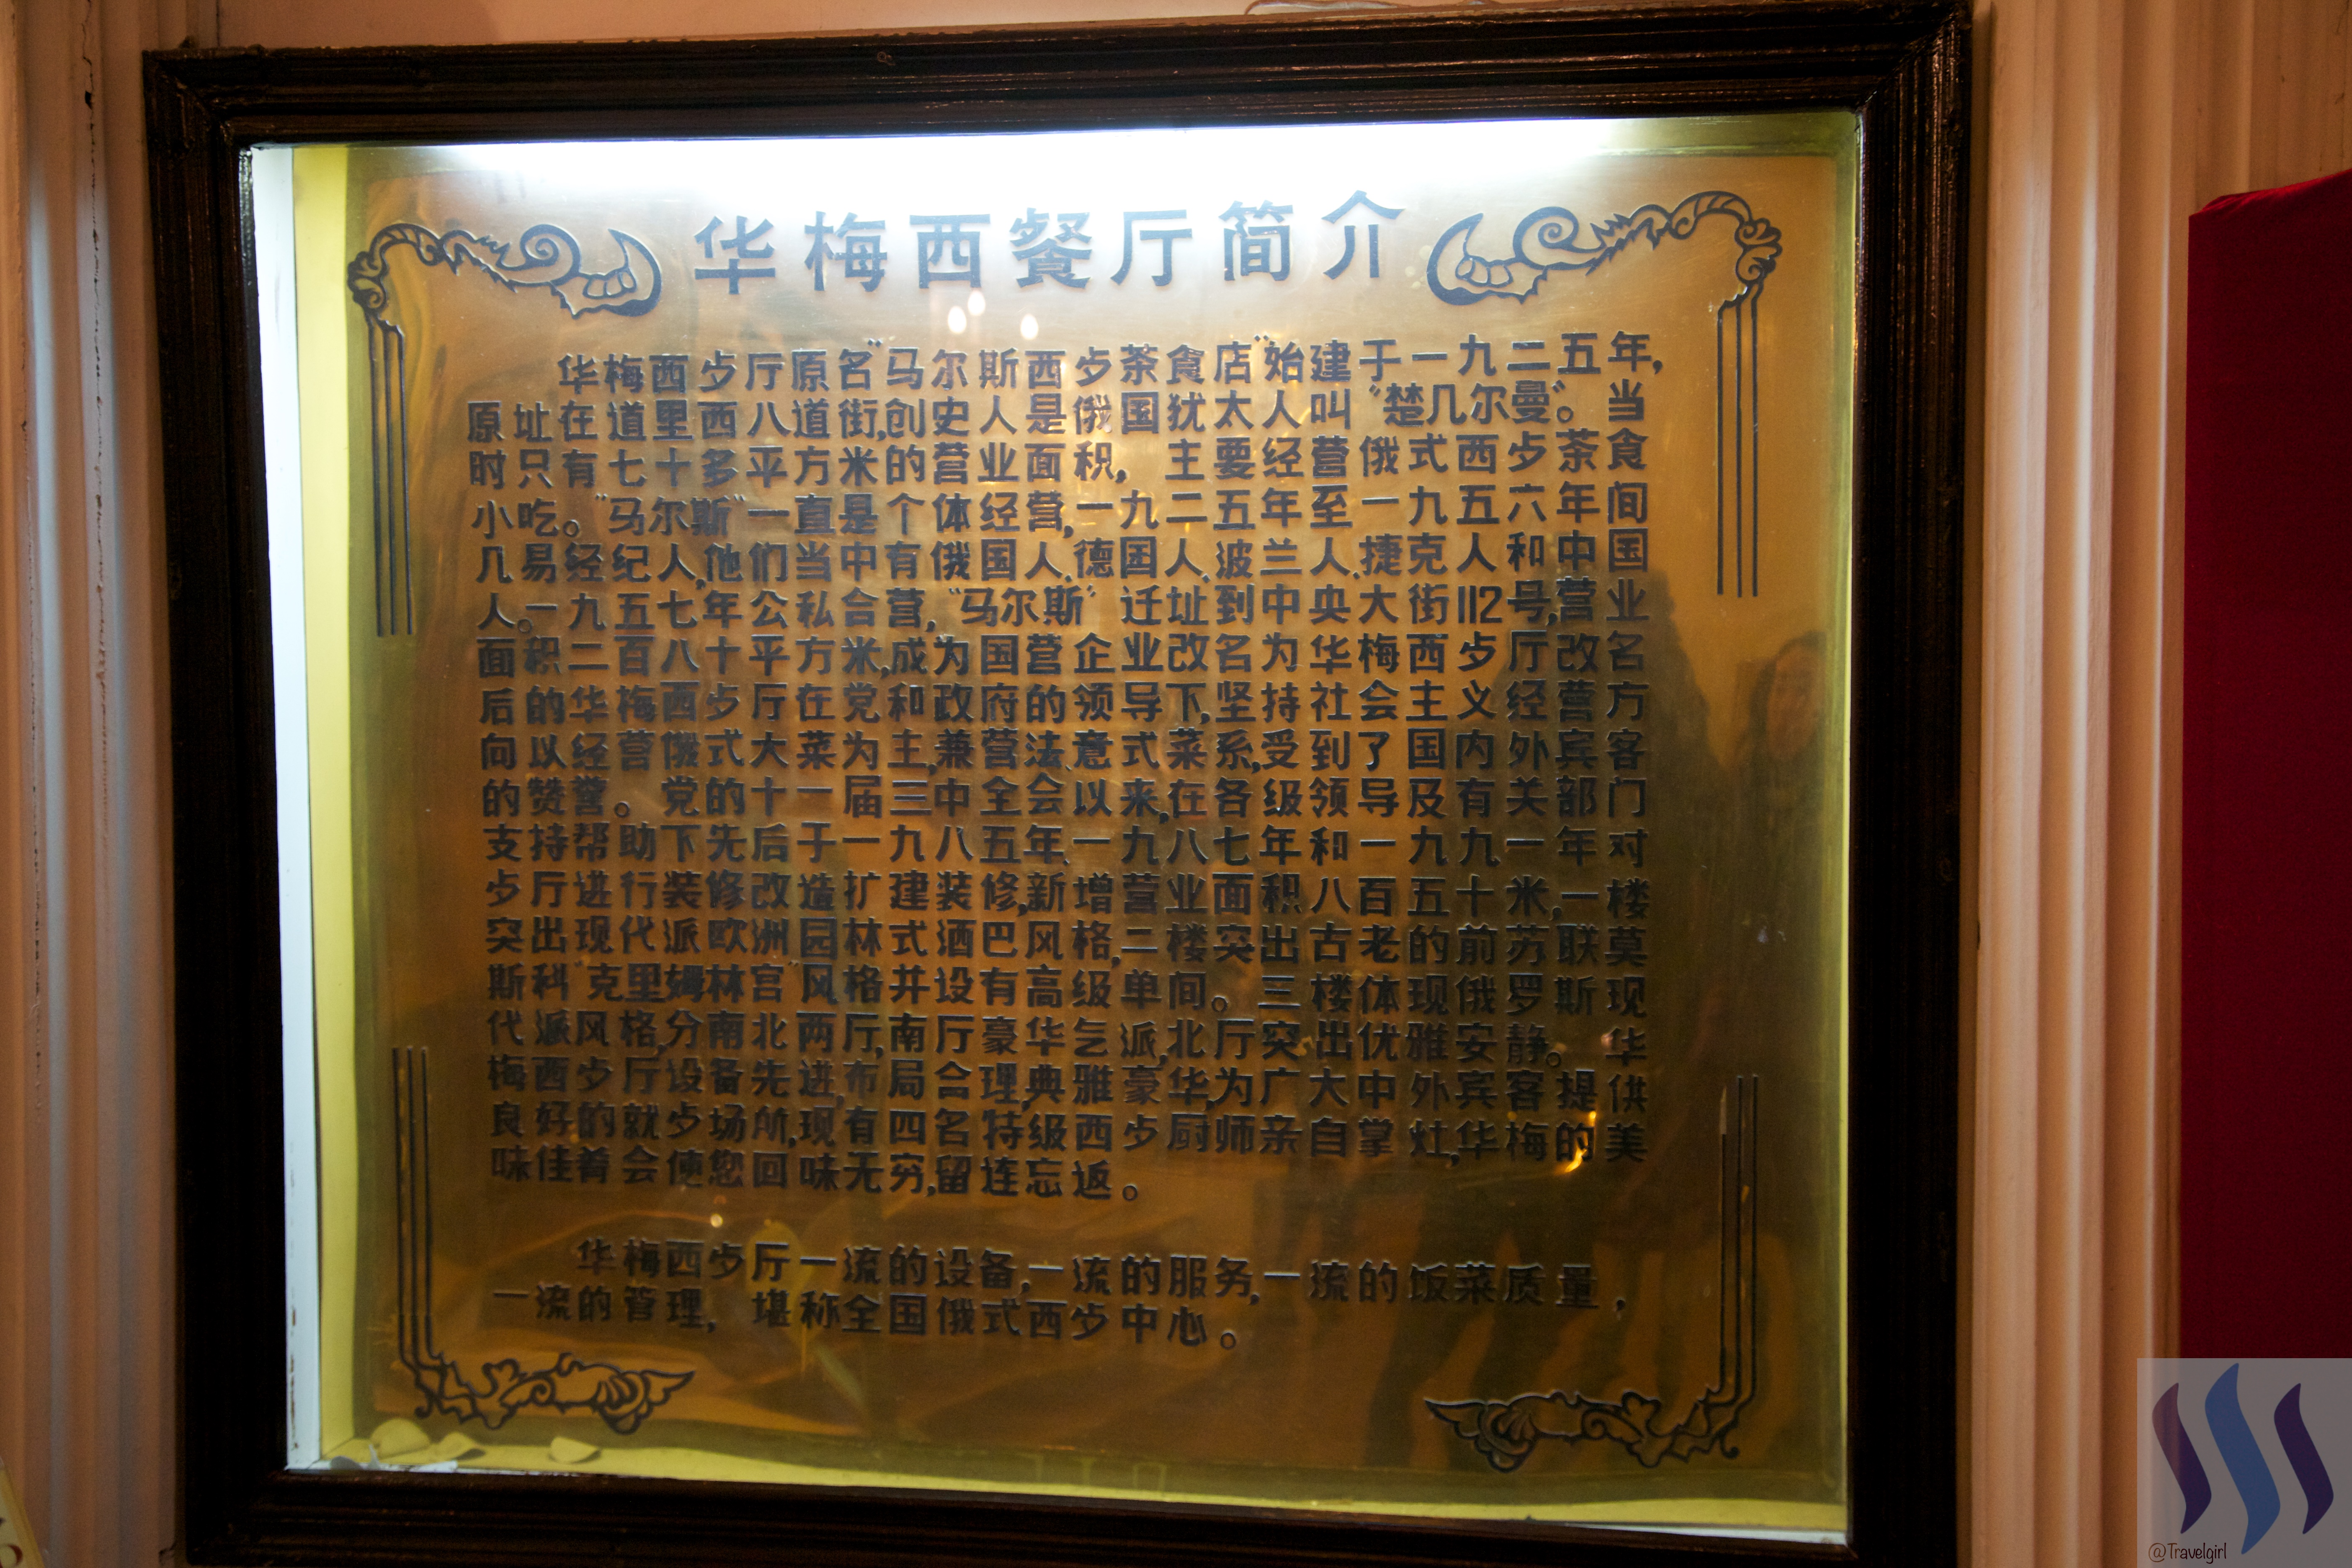 华梅西餐厅简介
华梅西歺厅原名"马尔斯西歺茶食店"始建于一九二五年,
原址在道里西八道街,创史人是俄国犹太人叫"楚几尔曼"。当
时只有七十多平方米的营业面积,主要经营俄式西歺茶食
小吃。"马尔斯"一直是个体经营,一九二五年至一九五六年间
几易经纪人,他们当中有俄国人、德国人、波兰人、捷克人和中国
人。一九五七年公私合营,"马尔斯"迁址到中央大街112号,营业
面积二百八十平方米,成为国营企业改名为华梅西歺厅改名
后的华梅西歺厅在党和政府的领导下,坚持社会主义经营方
向以经营俄式大菜为主,兼营法、意式菜系,受到了国内外宾客
的赞誉。党的十一届三中全会以来,在各级领导及有关部门
支持帮助下先后于一九八五年、一九八七年和一九九一年对
歺厅进行装修改造扩建装修,新增营业面积八百五十米,一楼
突出现代派欧洲园林式酒巴风格,二楼突出古老的前苏联莫
斯科"克里姆林宫"风格并设有高级单间。三楼体现俄罗斯现
代派风格,分南北两厅,南厅豪华气派,北厅突出优雅安静。华
梅西歺厅设备先进,布局合理,典雅豪华,为广大中外宾客提供
良好的就歺场所,现有四名特级西歺厨师亲自掌灶,华梅的美
味佳肴会使您回味无穷,留连忘返。
华梅西歺厅一流的设备,一流的服务,一流的饭菜质量,
一流的管理,堪称全国俄式西歺中心。
@Travelgirl